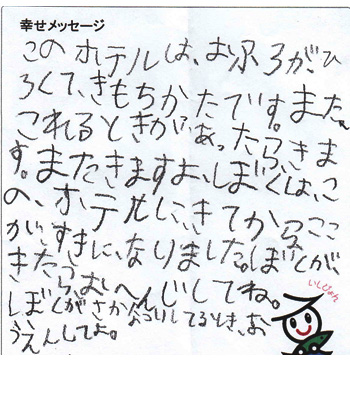 幸せメッセージ
このホテルは、おふろがひ
ろくて、きもちかたです。また。
これるときがあったら、きま
す。またきますよ、しぼくは、こ
の、ホテルに、きてから、ここ
がすきに、なりました。ぼくが、
きたら、おへんじしてね。
しぼくがさか
してるとき、お
うえんしてよ。
いしぴょん